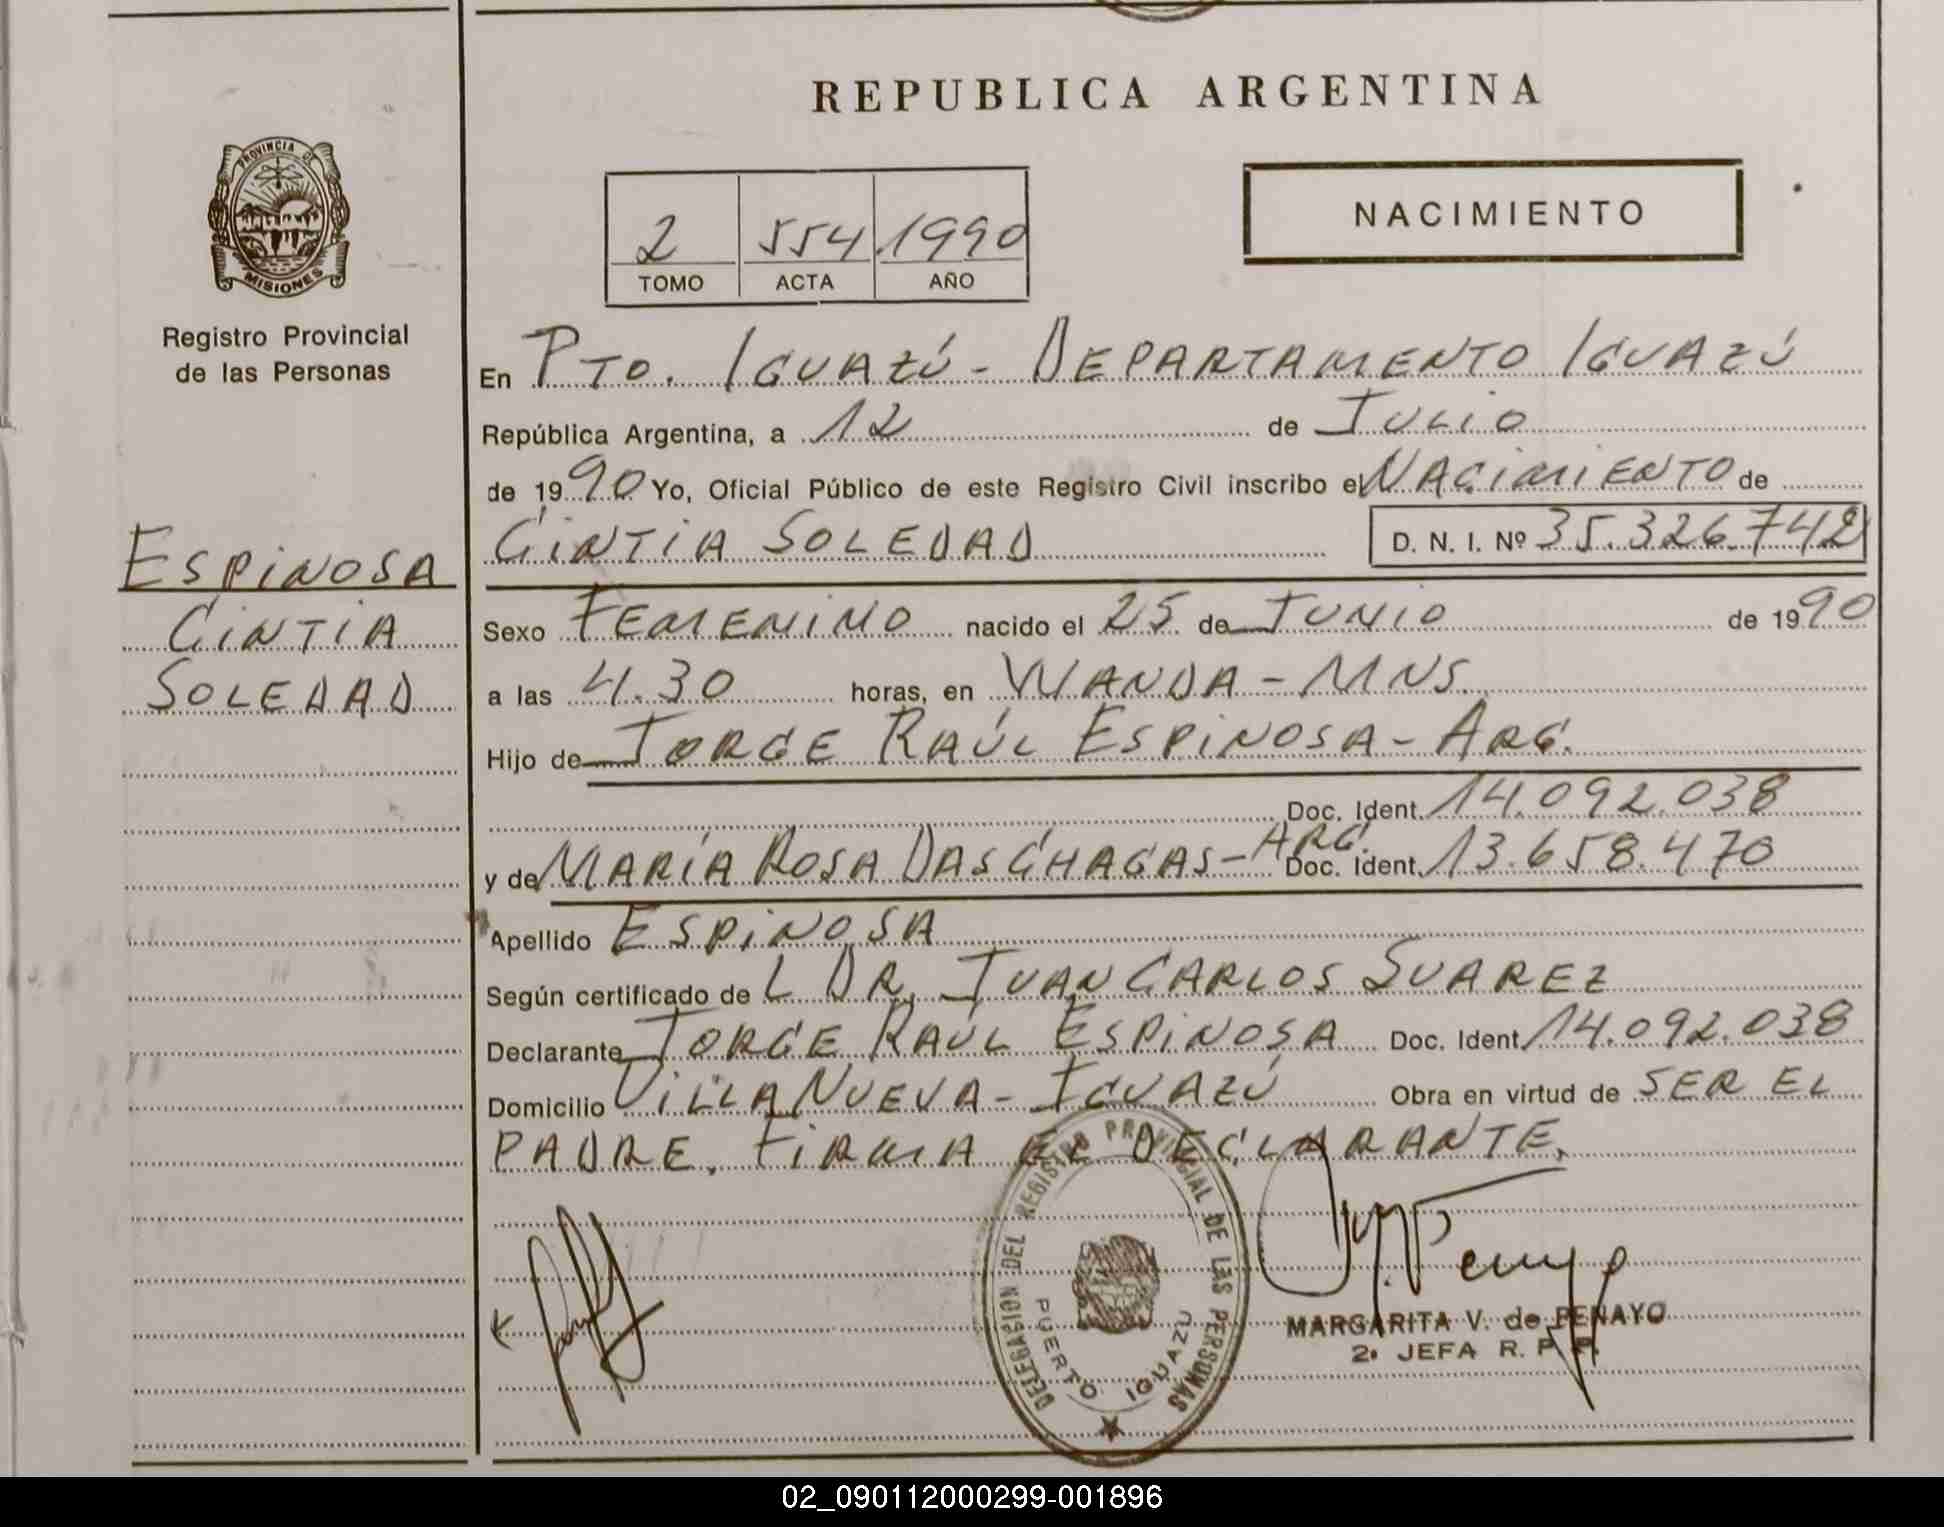 REPUBLICA ARGENTINA
PROVINCIA DE
MISIONES
Registro Provincial
de las Personas
2 554 1990
TOMO ACTA AÑO
NACIMIENTO
En PTO. IGUAZÚ - DEPARTAMENTO IGUAZÚ
República Argentina, a 12 de JULIO
de 1990 Yo, Oficial Público de este Registro Civil inscribo el NACIMIENTO de
CINTIA SOLEDAD D. N. I. Nº 35.326.742
ESPINOSA
CINTIA
SOLEDAD
Sexo FEMENINO nacido el 25 de JUNIO de 1990
a las 4.30 horas, en WANDA - MNS.
Hijo de JORGE RAÚL ESPINOSA - ARG.
Doc. Ident. 14.092.038
y de MARÍA ROSA DAS CHAGAS - ARG. Doc. Ident. 13.658.470
Apellido ESPINOSA
Según certificado de L DR. JUAN CARLOS SUAREZ
Declarante JORGE RAUL ESPINOSA Doc. Ident. 14.092.038
Domicilio VILLA NUEVA - IGUAZÚ Obra en virtud de SER EL
PADRE. FIRMA EL DECLARANTE.
DELEGACION DEL REGISTRO PROVINCIAL DE LAS PERSONAS
PUERTO IGUAZU
MARGARITA V. de PENAYO
2ª JEFA R. P. P.
02_090112000299-001896